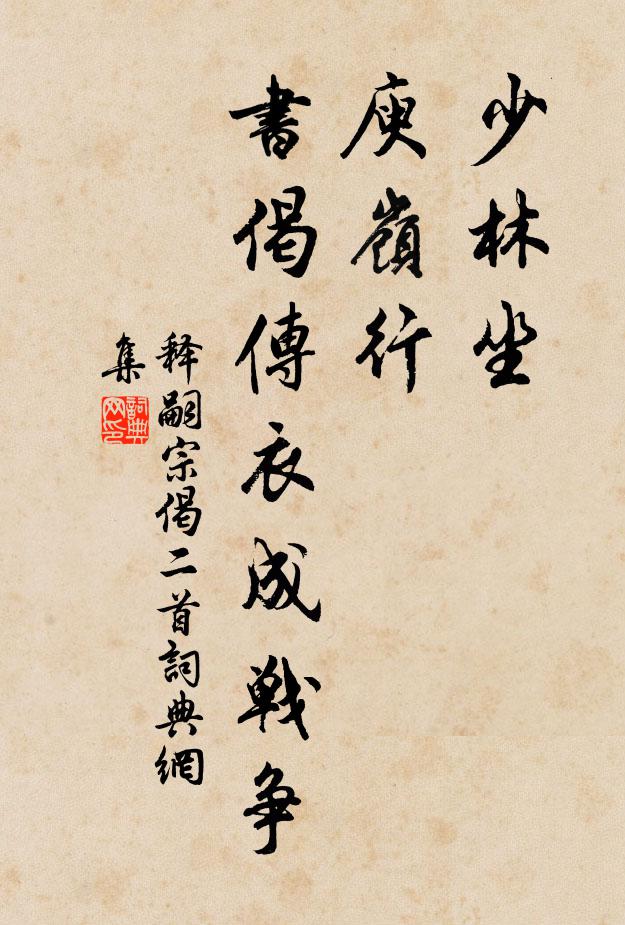 少林坐
庾嶺行
書偈傳衣成戦争
释嗣宗偈二首詞典網
集
詞典
网印